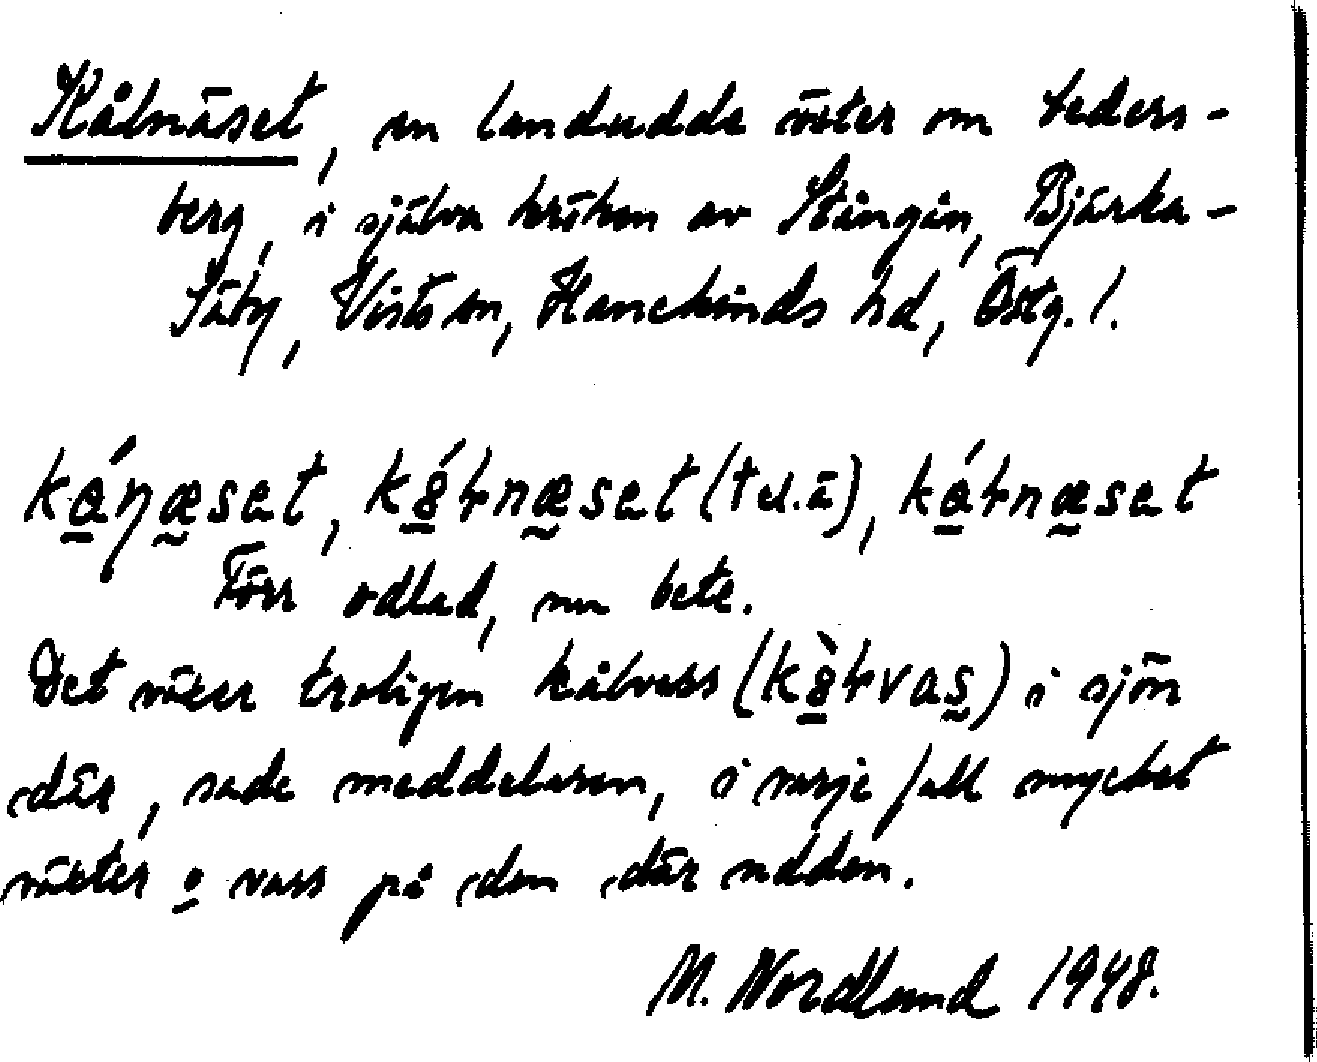 Kålnäset, en landudde väster om Seders-
berg, i själva kröken av Stångån, Bjärka-
Säby, Vists sn, Hanekinds hd, Östg. l.
ká̱ŋæset, kó̱ɫnæset (t el. ä), ká̱ɫnæset
Förr odlad, nu bete.
Det växer troligen kålvass (kò̱ɫvas̰) i sjön
där, sade meddelaren, i varje fall mycket
växter o vass på den där udden.
M. Nordlund 1948.